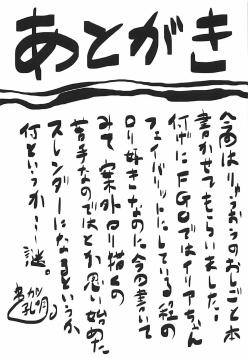 あとがき
今回はりゅうおうのおしごと本
書かせてもらいました!
付けにFGOではイリアちゃん
フェイバリットにしている程の
ロリ好きなのに今回書いて
みて案外ロリ描くの
苦手なのではとか思い始めた
スレンダーになるというか
何というか…謎。